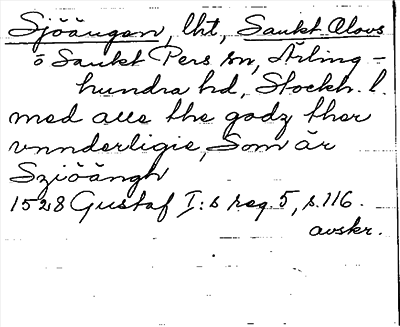 Sjöängen, lht, Sankt Olovs
o Sankt Pers sn, Ärling-
hundra hd, Stockh. l.
med alle the godz ther
vnnderligie, Som är
Sziöängh
1528 Gustaf I:s reg. 5, s. 116.
avskr.